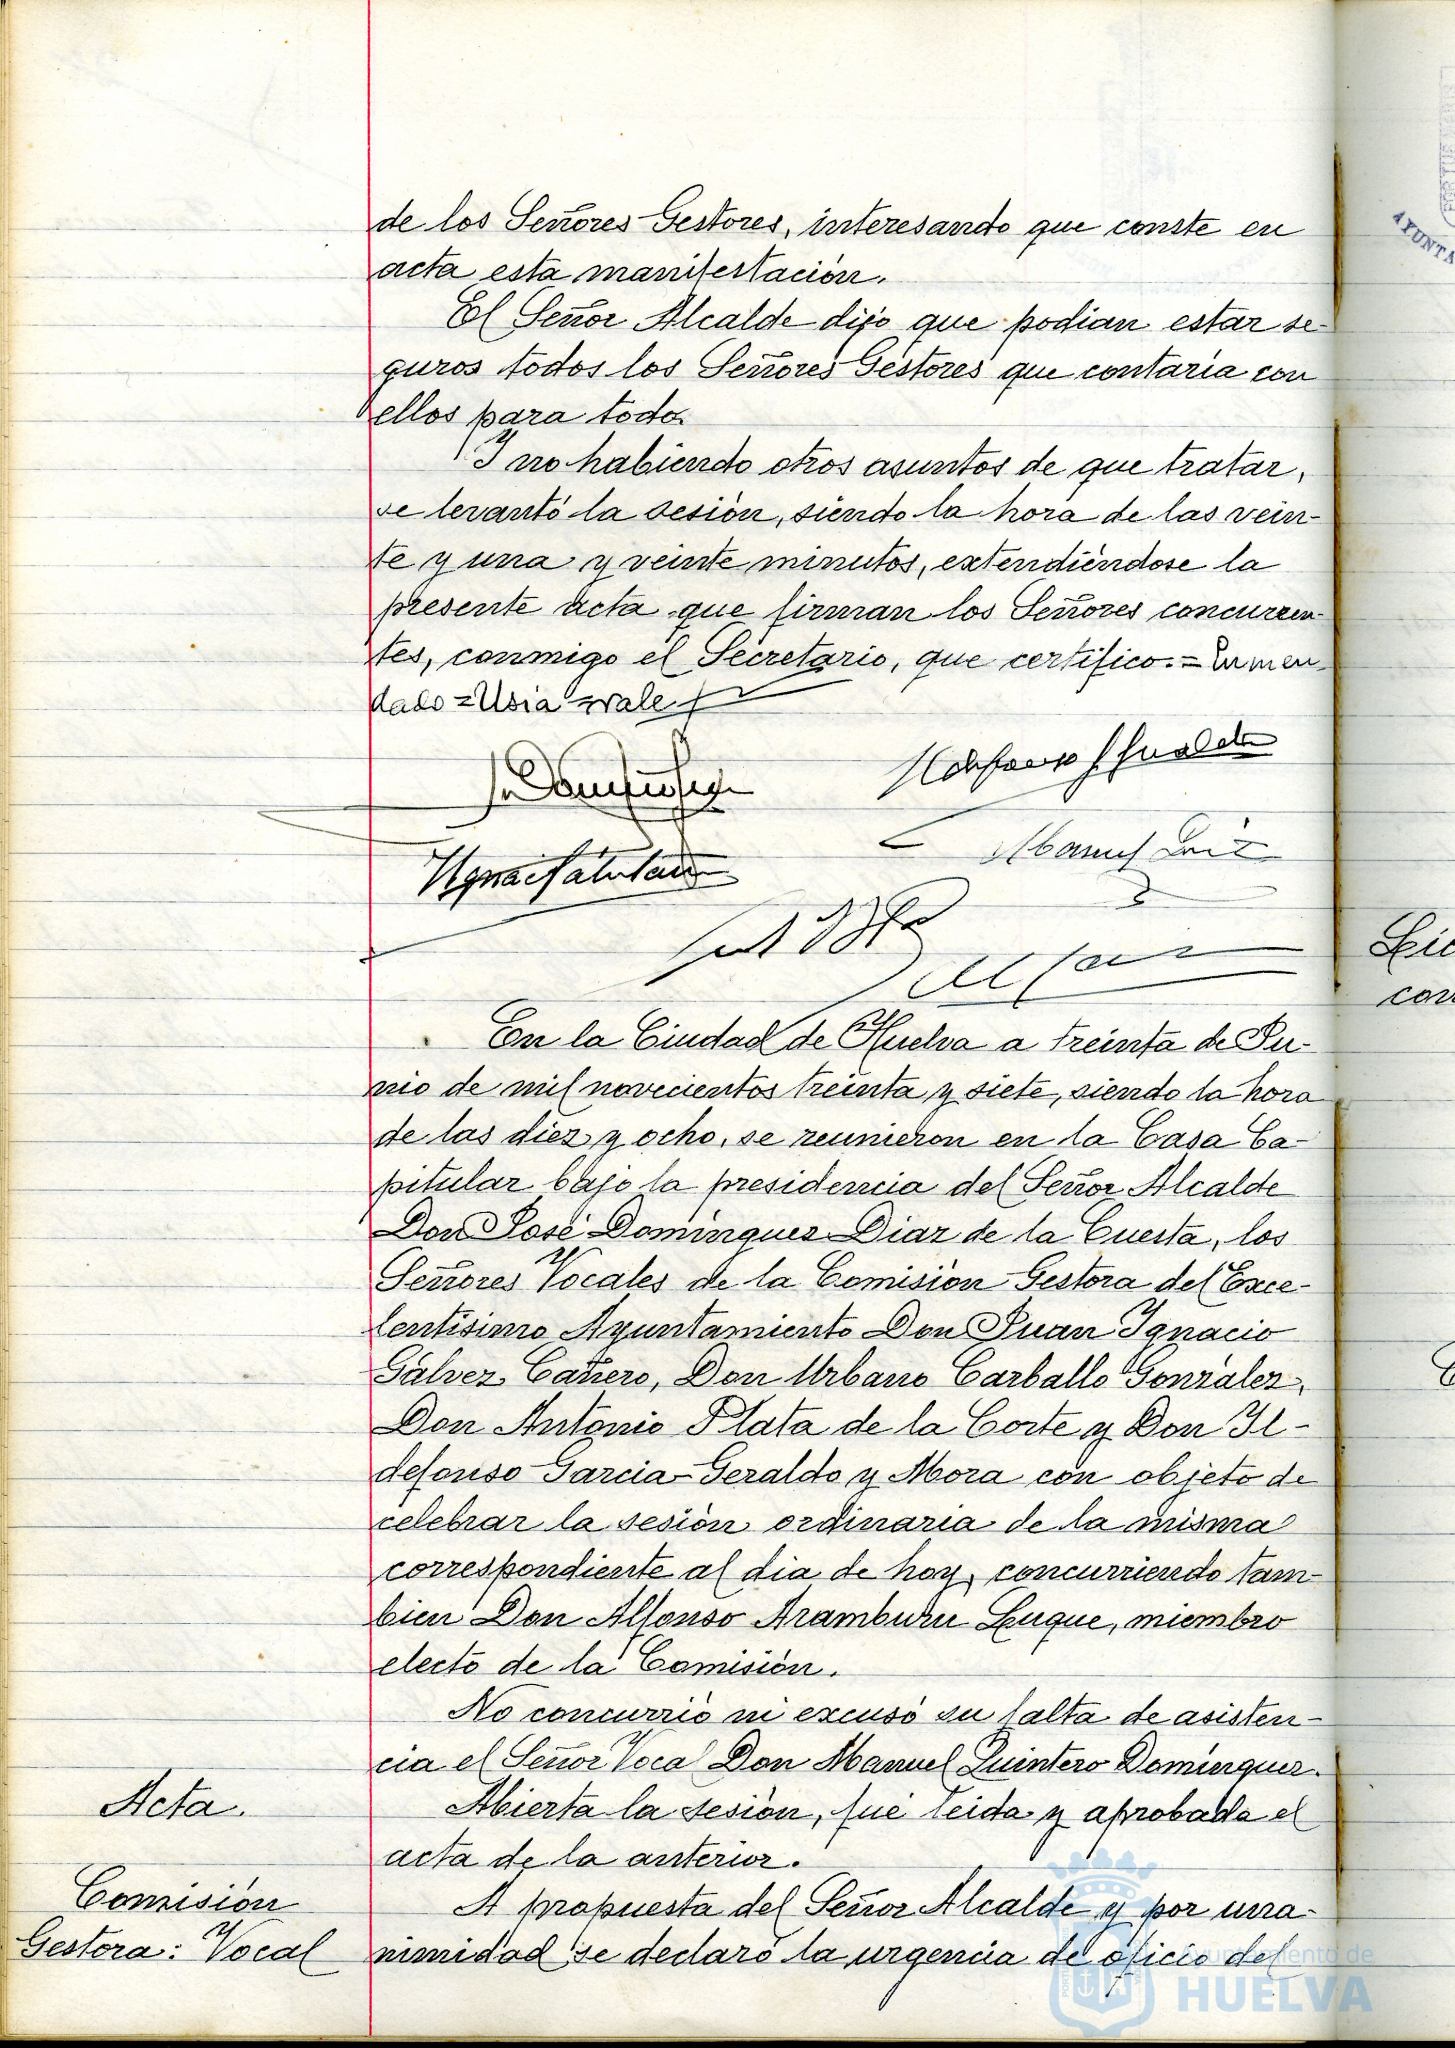 de los Señores Gestores, interesando que conste en
acta esta manifestación.
El Señor Alcalde dijo que podian estar se-
guros todos los Señores Gestores que contaria con
ellos para todo.
Y no habiendo otros asuntos de que tratar,
se levantó la sesión, siendo la hora de las vein-
te y una y veinte minutos, extendiéndose la
presente acta que firman los Señores concurren-
tes, conmigo el Secretario, que certifico.=Enmen-
dado=Usia=vale
En la Ciudad de Huelva a treinta de Ju-
nio de mil novecientos treinta y siete, siendo la hora
de las diez y ocho, se reunieron en la Casa Ca-
pitular bajo la presidencia del Señor Alcalde
Don José Dominguez Diaz de la Cuesta, los
Señores Vocales de la Comisión Gestora del Exce-
lentisimo Ayuntamiento Don Juan Ignacio
Gálvez Cañero, Don Urbano Carballo González,
Don Antonio Plata de la Corte y Don Il-
defonso Garcia-Geraldo y Mora con objeto de
celebrar la sesión ordinaria de la misma
correspondiente al dia de hoy, concurriendo tam-
bien Don Alfonso Aramburu Luque, miembro
electo de la Comisión.
No concurrió ni excusó su falta de asisten-
cia el Señor Vocal Don Manuel Quintero Dominguez.
Acta.
Abierta la sesión, fué leida y aprobada el
acta de la anterior.
Comisión
Gestora: Vocal
A propuesta del Señor Alcalde y por una-
nimidad se declaró la urgencia de oficio del
Ayuntamiento de
HUELVA